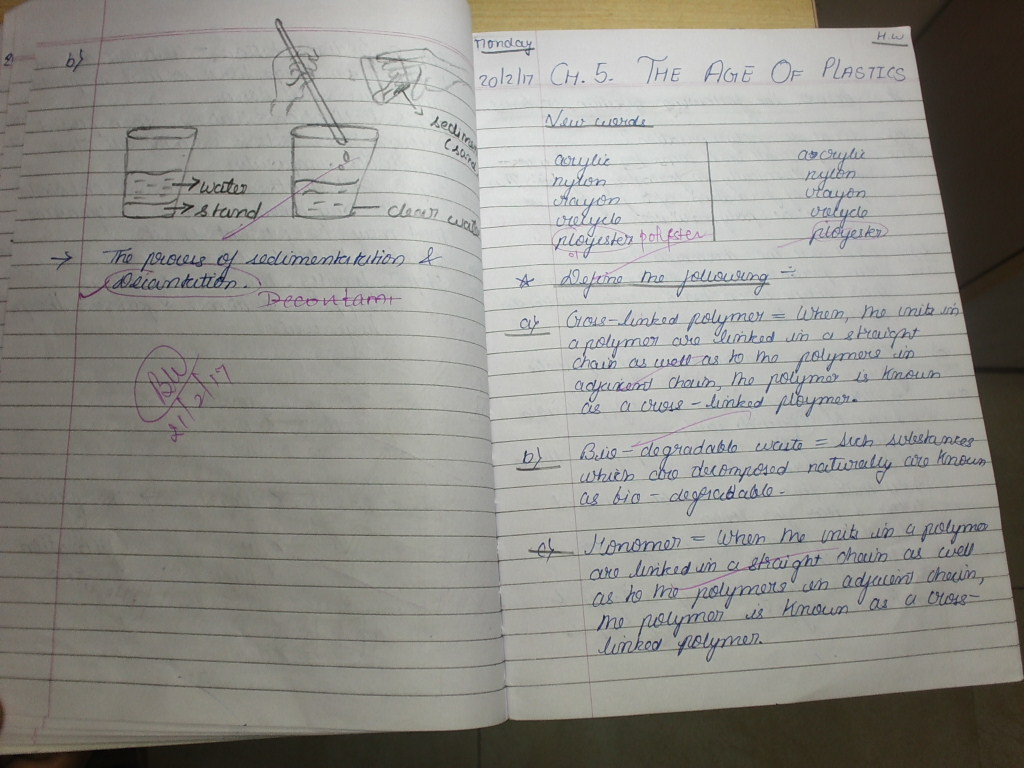 b)
sedimen
(sand
→water
→stand
clear wate
→ The process of sedimentatution &
Decantation.
Decontami
21/2/17
Monday
H.W
20/2/17 CH. 5. THE AGE OF PLASTICS
New words
acrylic acrylic
nylon nylon
rayon rayon
recycle recycle
ployester polyester ployester
* Define the following :-
a) Cross-linked polymer = When, the units in
a polymer are linked in a straight
chain as well as to the polymers in
adjacent chain, the polymer is known
as a cross-linked ploymer.
b) Bio-degradable waste = Such substances
which are decomposed naturally are known
as bio-degradable.
c) Monomer = When the units in a polymer
are linked in a straight chain as well
as to the polymers in adjacent chain,
the polymer is known as a cross-
linked polymer.